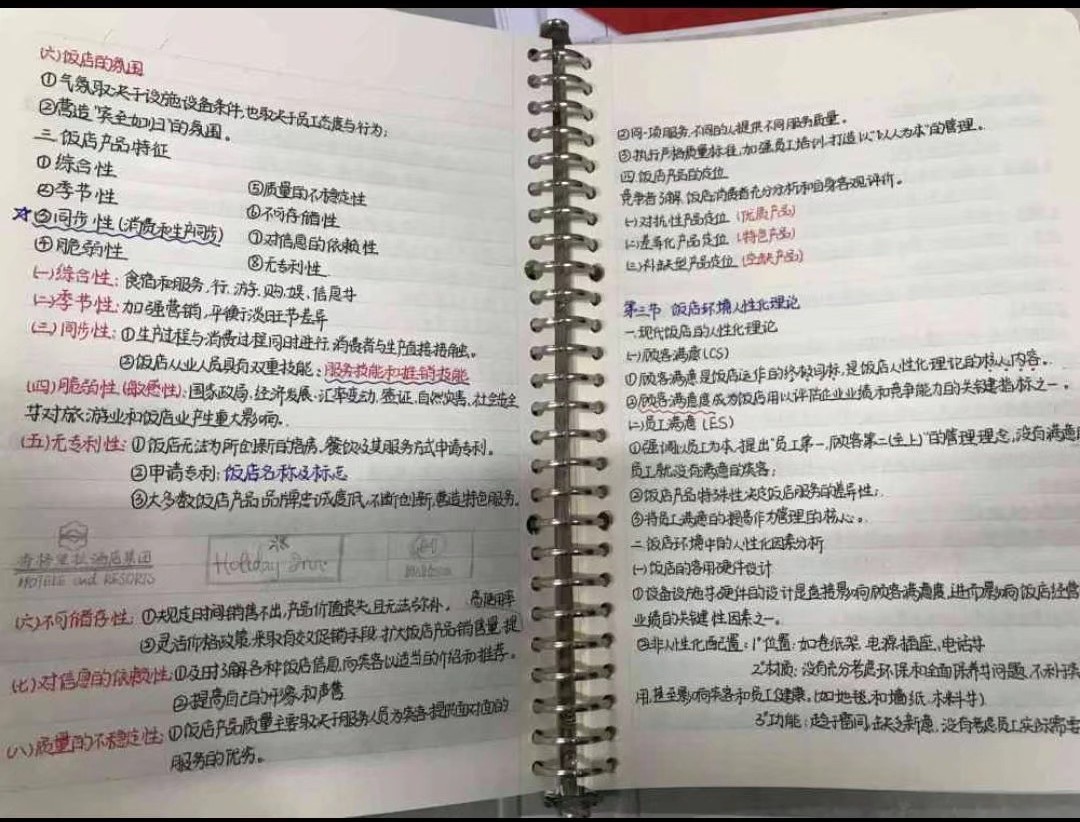 (六)饭店的氛围
①气氛取决于设施设备条件,也取决于员工态度与行为;
②营造"宾至如归"的氛围。
三.饭店产品特征
①综合性
②季节性
③同步性(消费和生产同步)
④脆弱性
⑤质量的不稳定性
⑥不可存储性
⑦对信息的依赖性
⑧无专利性
(一)综合性:食宿和服务,行.游.购.娱.信息等
(二)季节性:加强营销,平衡淡旺节差异
(三)同步性:①生产过程与消费过程同时进行.消费者与生产直接接触。
②饭店从业人员具有双重技能:服务技能和推销技能
(四)脆弱性(敏感性):国家政局.经济发展.汇率变动.签证.自然灾害.社会安全
等对旅游业和饭店业产生重大影响。
(五)无专利性:①饭店无法为所创新的客房、餐饮及其服务方式申请专利。
②申请专利:饭店名称及标志
③大多数饭店产品品牌忠诚度低.不断创新,营造特色服务.
香格里拉酒店集团
HOTELS and RESORTS
Holiday Inn
(六)不可储存性:①规定时间销售不出,产品价值丧失,且无法弥补。 高使用率
②灵活价格政策.采取有效促销手段.扩大饭店产品销售量.提
(七)对信息的依赖性:①及时了解各种饭店信息,向宾客以适当的介绍和推荐。
②提高自己的形象和声誉
(八)质量的不稳定性:①饭店产品质量主要取决于服务人员为宾客提供面对面的
服务的优劣。
②同一项服务.不同的人提供不同服务质量。
③执行严格质量标准,加强员工培训,打造以"以人为本"的管理。
四.饭店产品的定位
竞争者了解.饭店消费者充分分析和自身客观评价。
(一)对抗性产品定位(优质产品)
(二)差异化产品定位(特色产品)
(三)补缺型产品定位(空缺产品)
第三节 饭店环境人性化理论
一.现代饭店的人性化理论
(一)顾客满意(CS)
①顾客满意是饭店运作的终极目标,是饭店人性化理论的核心内容。
②顾客满意度成为饭店用以评估企业业绩和竞争能力的关键指标之一。
(二)员工满意(ES)
①强调以员工为本,提出"员工第一,顾客第二(至上)"的管理理念,没有满意
员工就没有满意的宾客;
②饭店产品特殊性决定饭店服务的差异性;
③将员工满意的提高作为管理的核心。
二.饭店环境中的人性化因素分析
(一)饭店的客用硬件设计
①设备设施等硬件的设计是直接影响顾客满意度,进而影响饭店经营
业绩的关键性因素之一。
②非人性化配置:1°位置:如卷纸架.电源插座.电话等
2°材质:没有充分考虑环保和全面保养等问题.不利于
用,甚至影响宾客和员工健康.(如地毯和墙纸.木料等)
3°功能:趋于雷同.缺乏新意.没有考虑员工实际需要